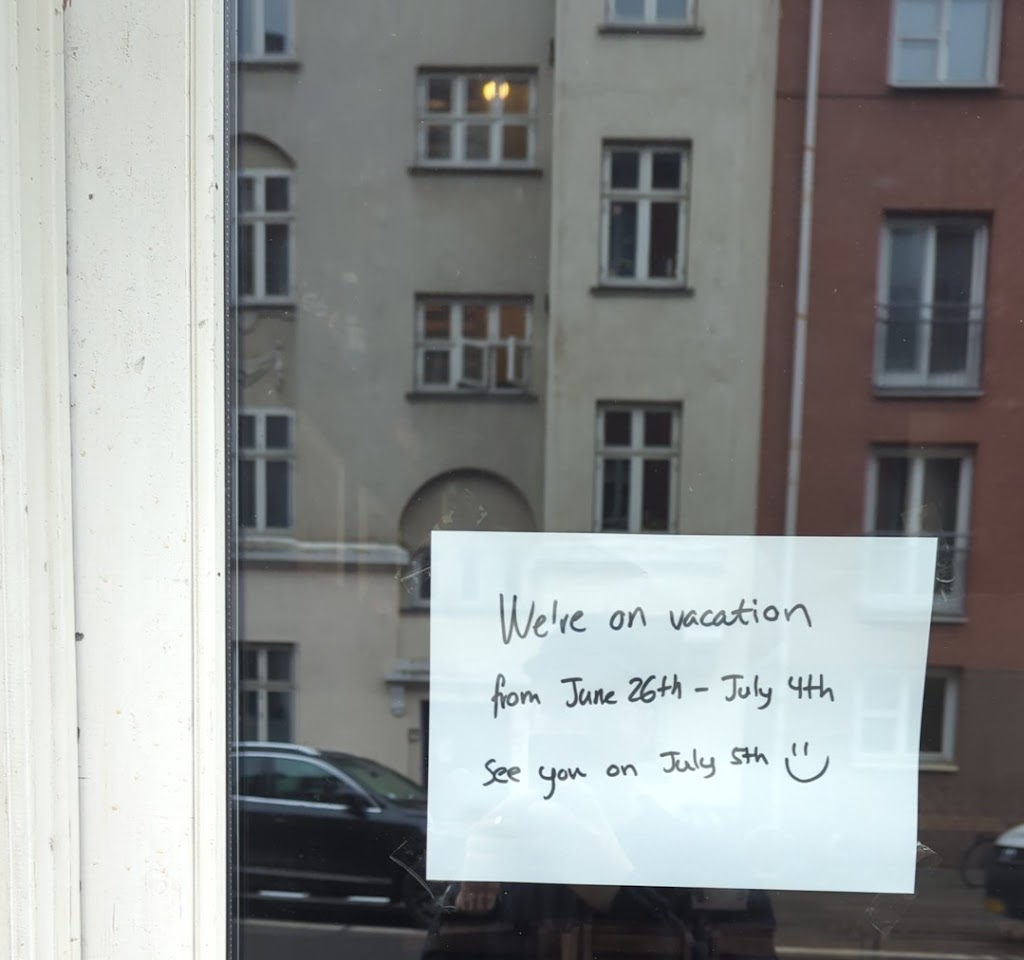 We're on vacation
from June 26th - July 4th
See you on July 5th